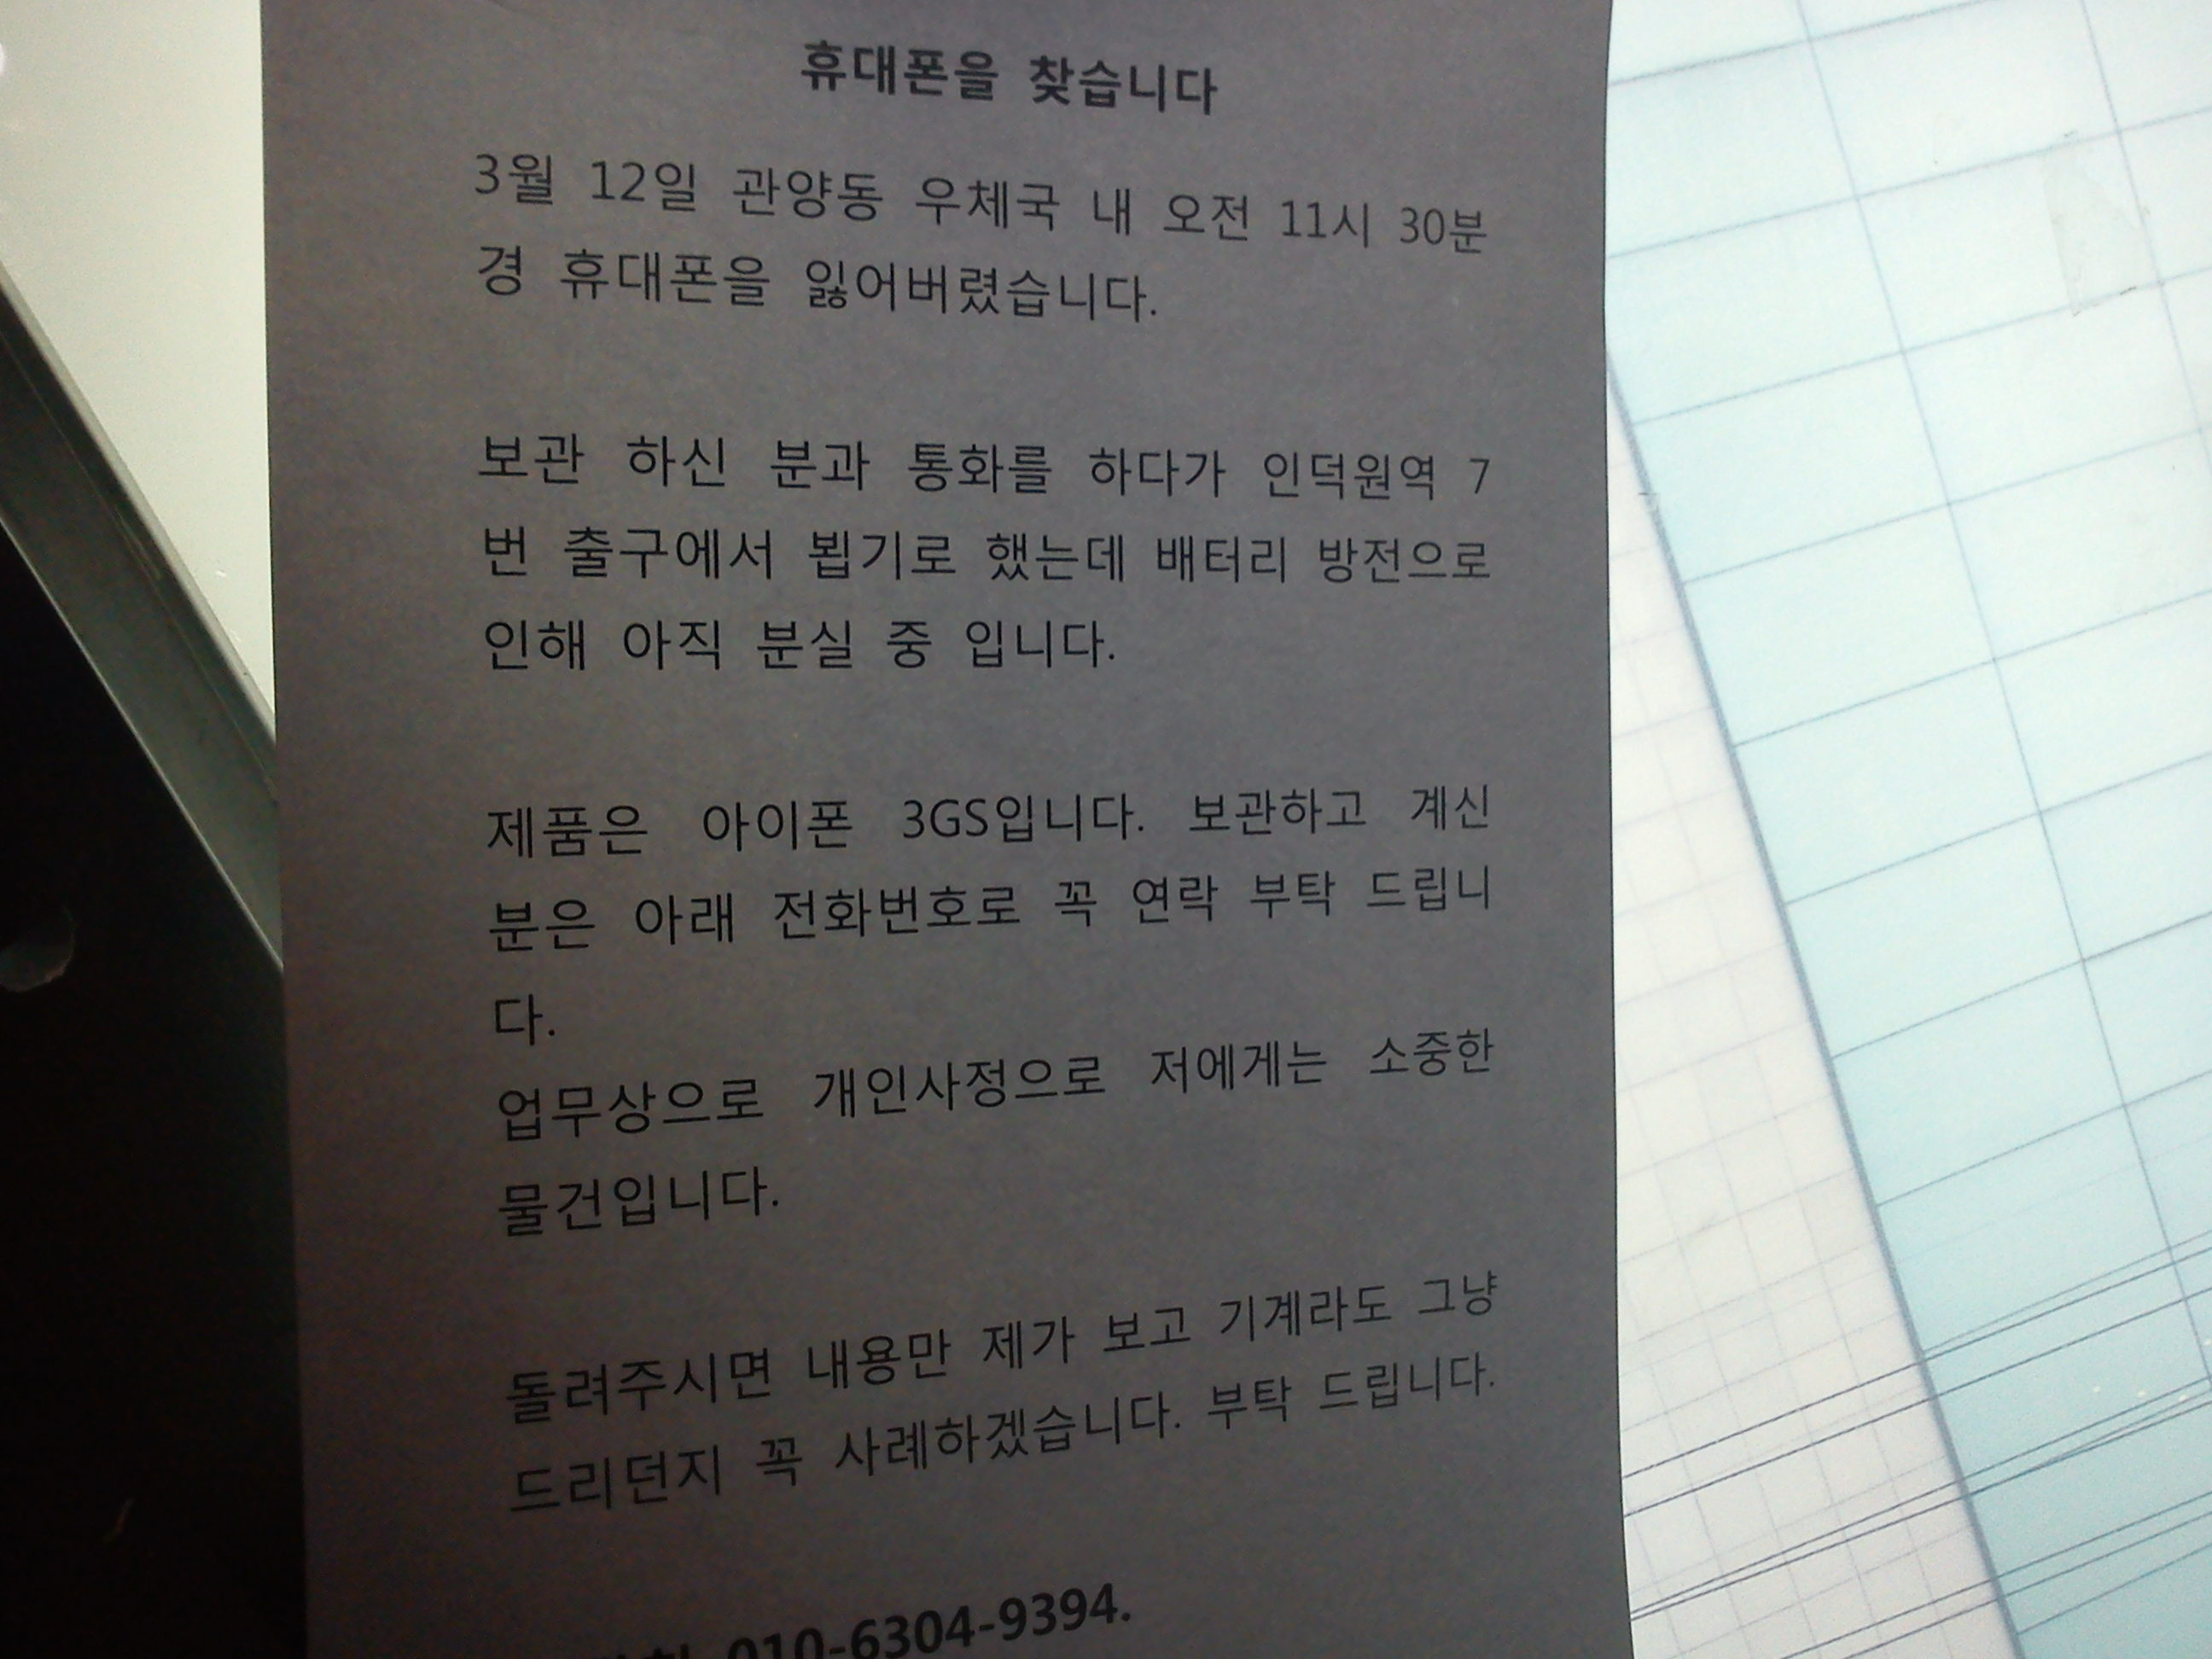 휴대폰을 찾습니다
3월 12일 관양동 우체국 내 오전 11시 30분
경 휴대폰을 잃어버렸습니다.
보관 하신 분과 통화를 하다가 인덕원역 7
번 출구에서 뵙기로 했는데 배터리 방전으로
인해 아직 분실 중 입니다.
제품은 아이폰 3GS입니다. 보관하고 계신
분은 아래 전화번호로 꼭 연락 부탁 드립니
다.
업무상으로 개인사정으로 저에게는 소중한
물건입니다.
돌려주시면 내용만 제가 보고 기계라도 그냥
드리던지 꼭 사례하겠습니다. 부탁 드립니다.
010-6304-9394.